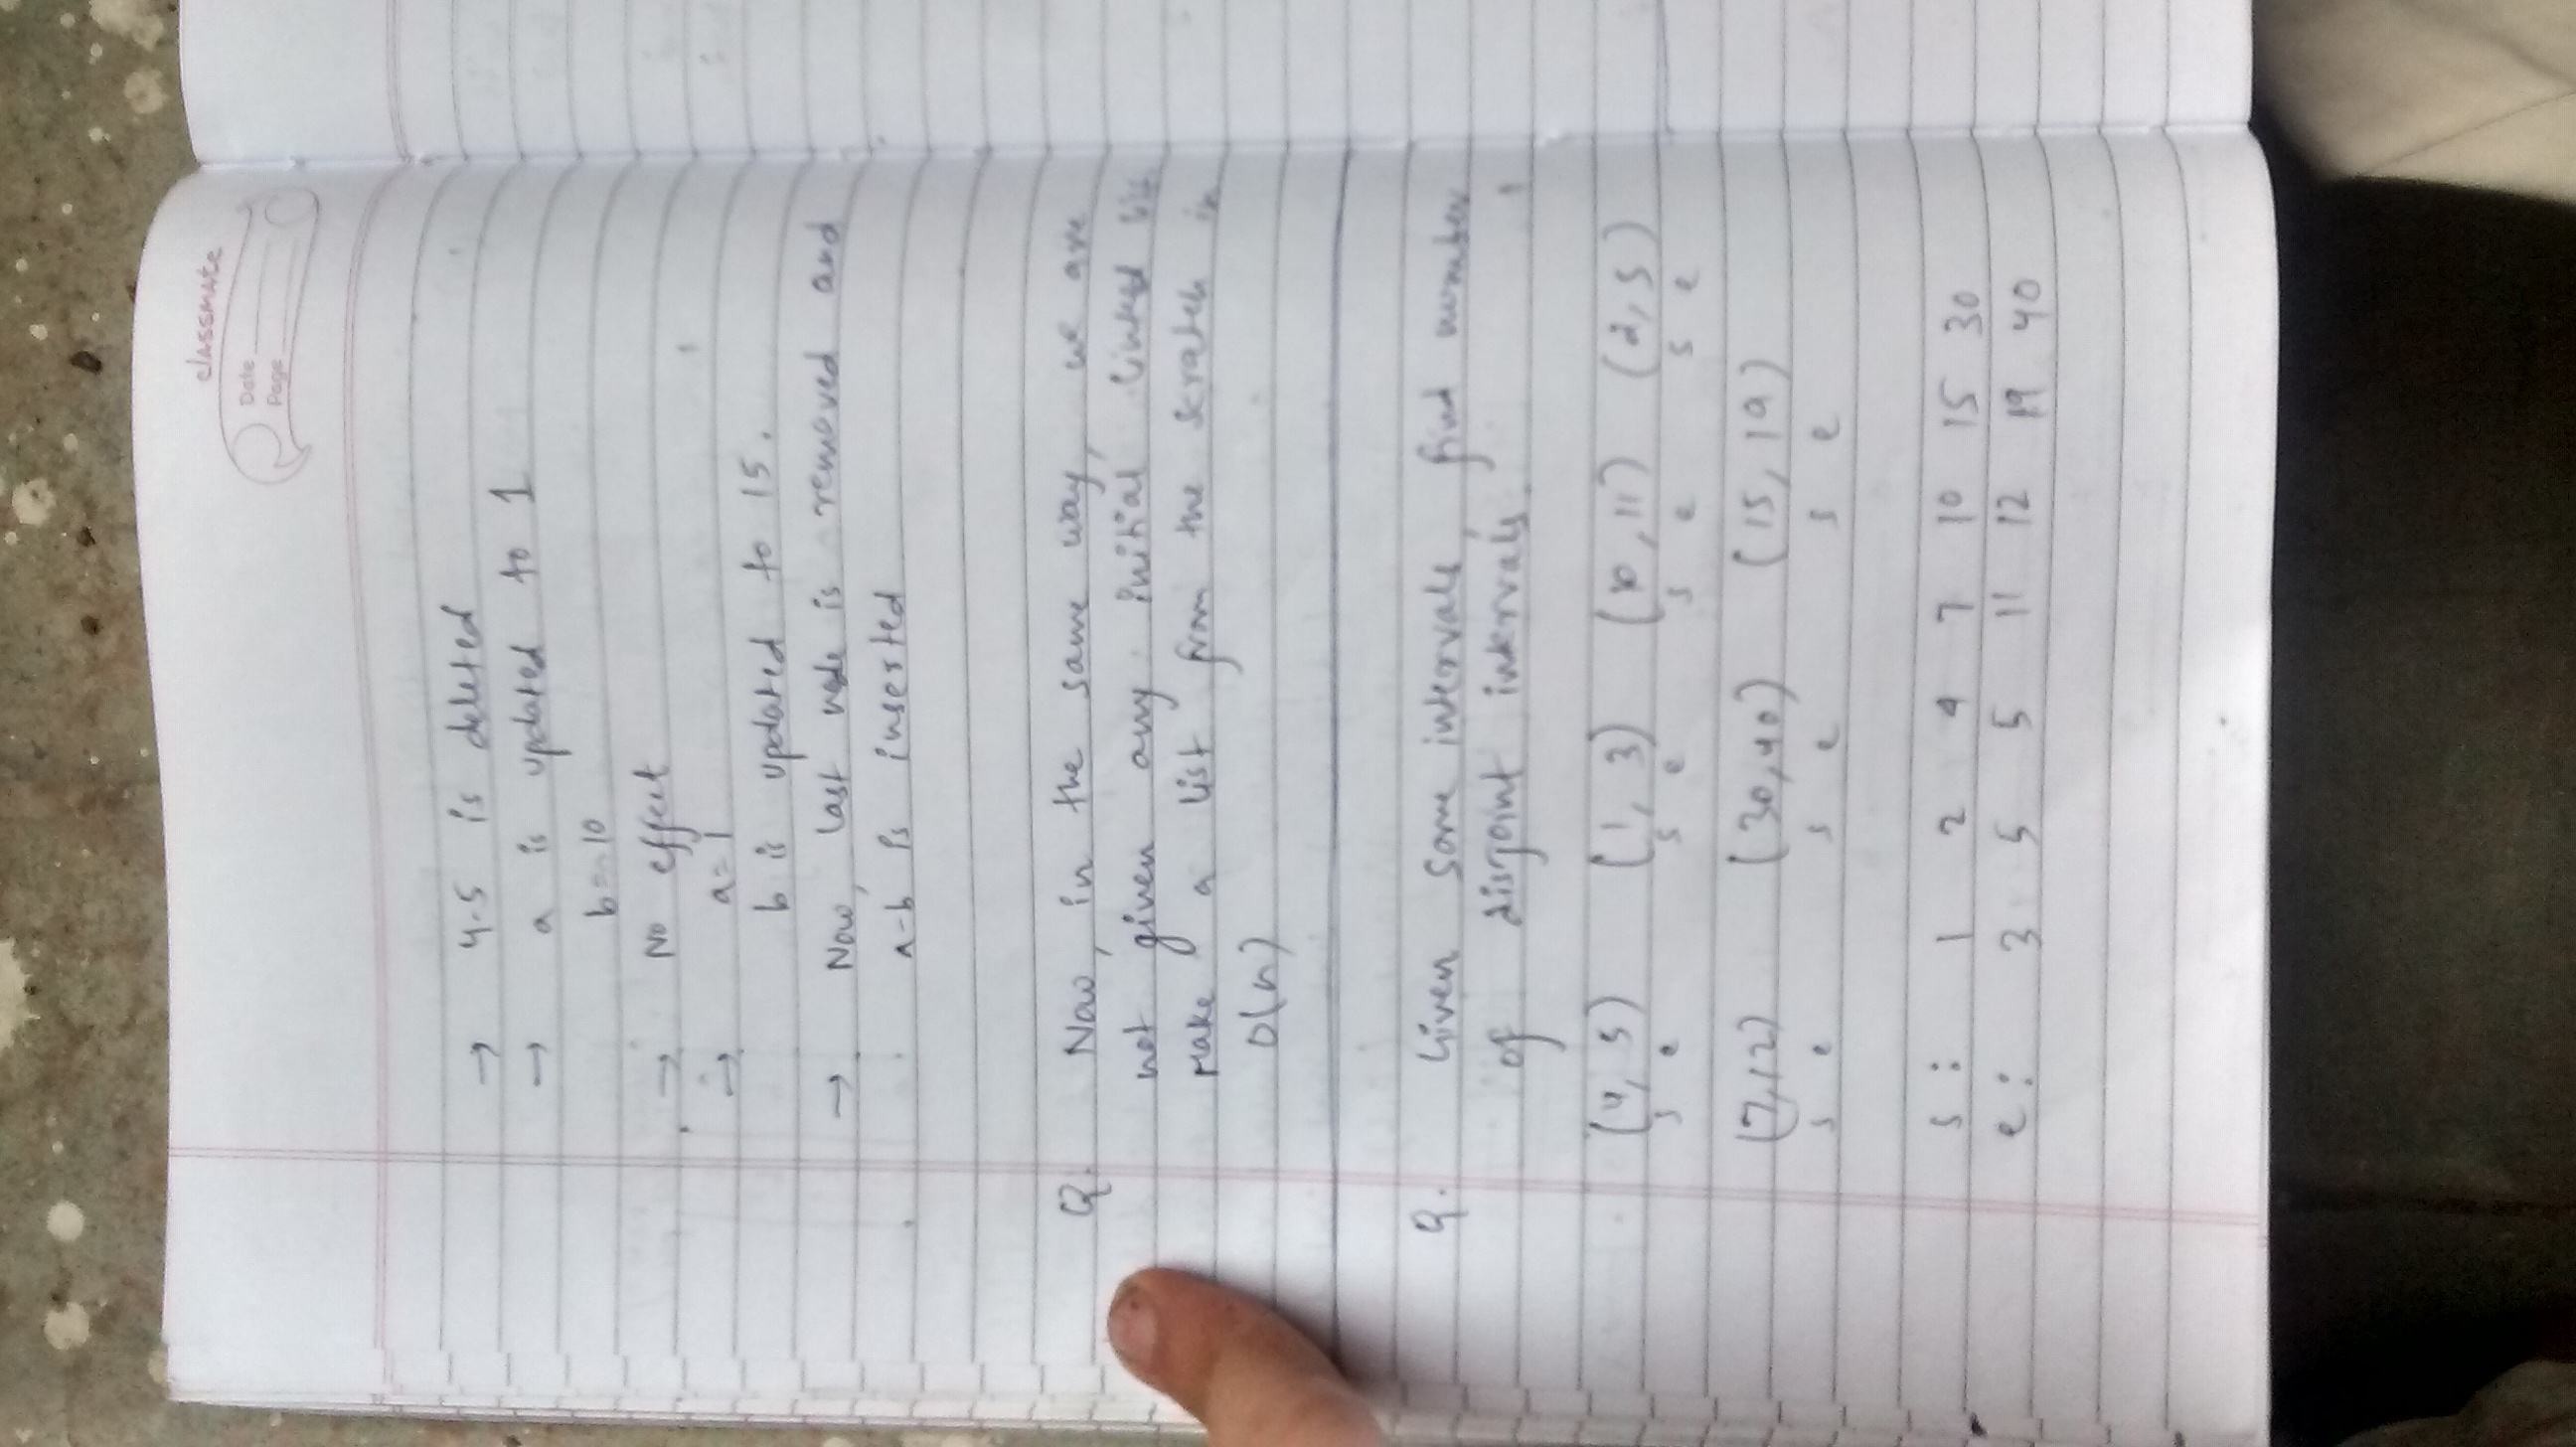 classmate
Date
Page
→ 4-5 is deleted
→ a is updated to 1
b=10
→ No effect
→ a=1
b is updated to 15.
→ Now, last node is removed and
a-b is inserted
Q. Now, in the same way, we are
not given any initial linked list
Make a list from the scratch in
O(n)
Q. Given some intervals, find number
of disjoint intervals.
(4,5) (1,3) (10,11) (2,5)
s e s e s e s e
(7,12) (30,40) (15,19)
s e s e s e
s: 1 2 4 7 10 15 30
e: 3 5 5 11 12 19 40